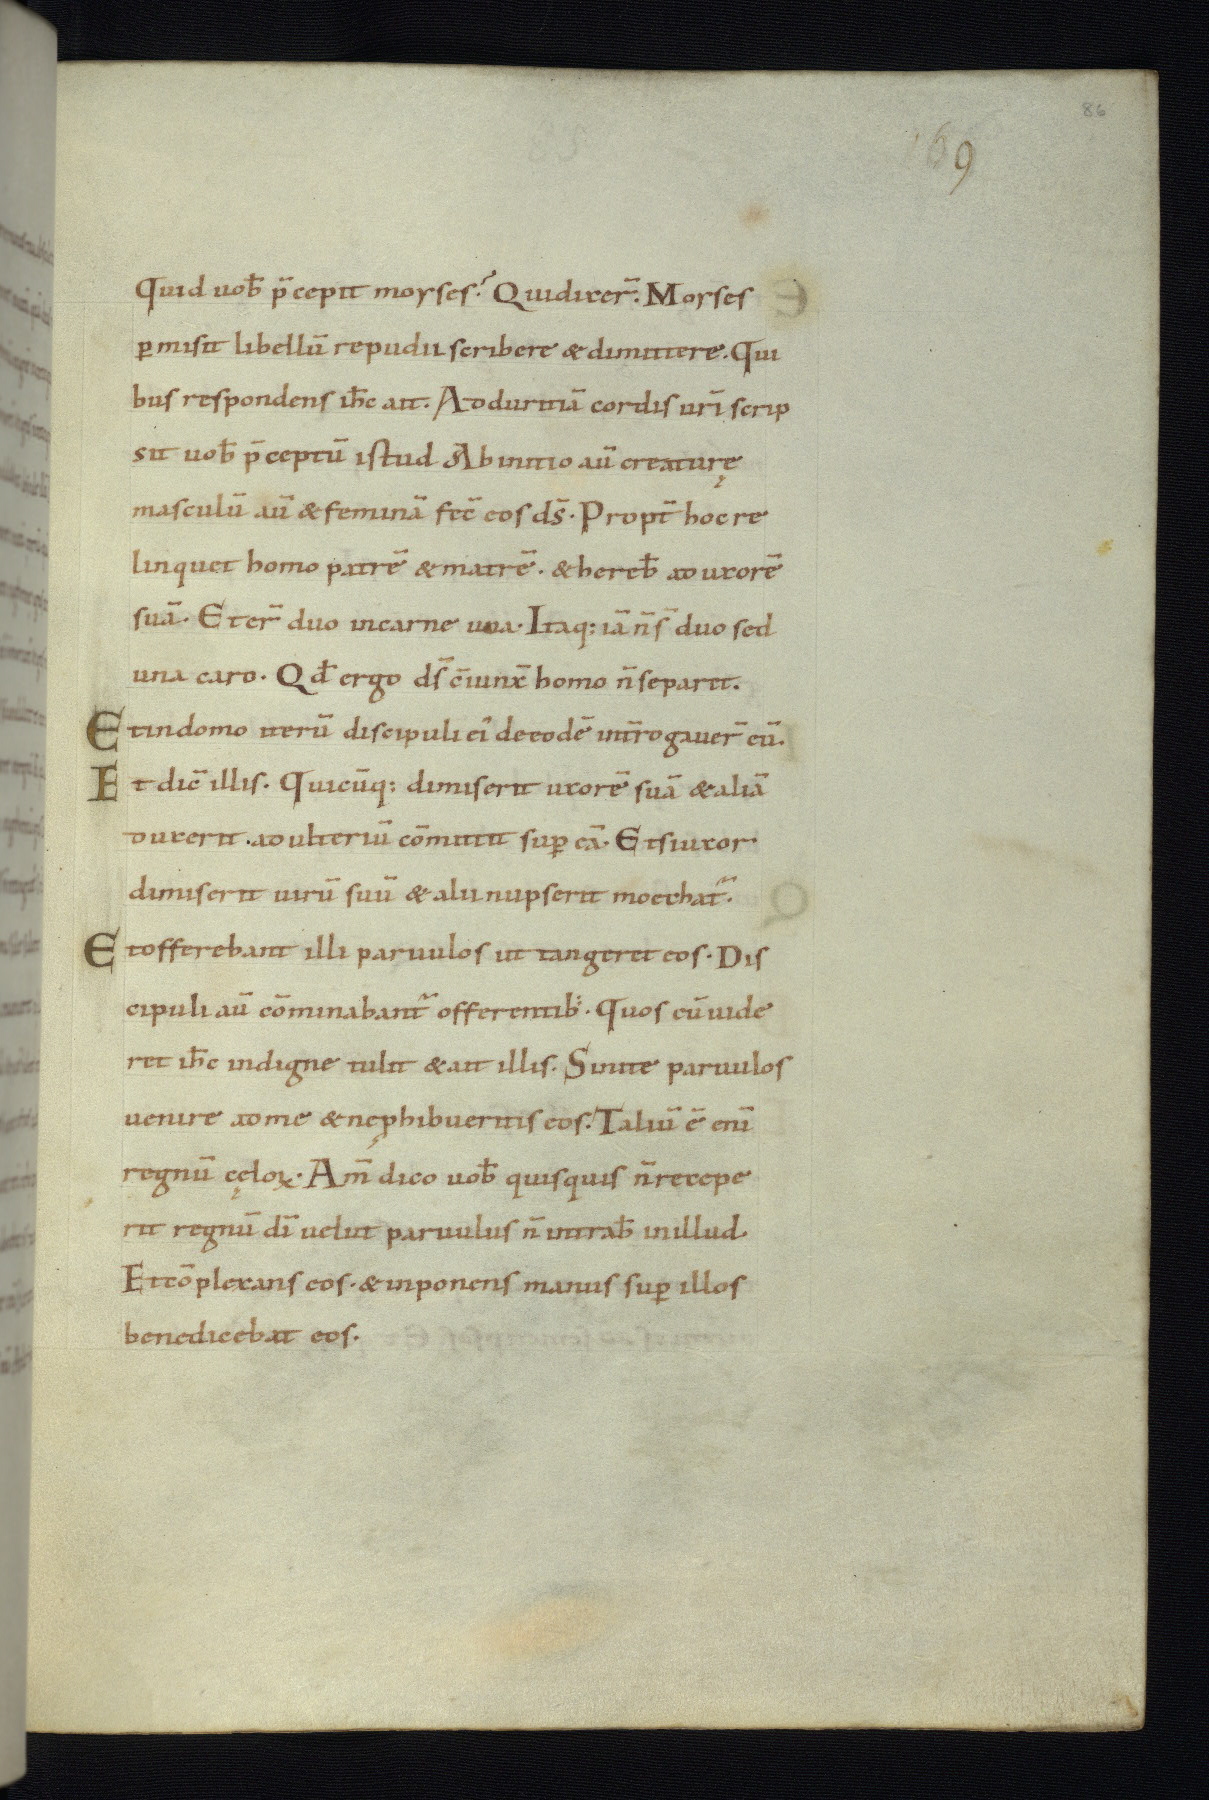 86
169
Quid uob̄ p̄cepit moyses? Qui dixer̄. Moyses
ꝑmisit libellū repudii scribere & dimittere. Qui
bus respondens ih̄c ait. Ad duritiā cordis ur̄i scrip
sit uob̄ p̄ceptū istud. Ab initio aū creaturę
masculū aū & feminā fec̄ eos ds̄. Propt̄ hoc re
linquet homo patrē & matrē. & hereb̄ ad uxorē
suā. Et er̄ duo in carne una. Itaq: iā n̄ s̄ duo sed
una caro. Qd̄ ergo ds̄ c̄iunx̄ homo n̄ separet.
Et in domo iterū discipuli ei᷒ de eodē int̄rogauer̄ eū.
Et dic̄ illis. Quicūq: dimiserit uxorē suā & aliā
duxerit. adulteriū cōmittit suꝑ eā. Et si uxor
dimiserit uirū suū & alii nupserit moechat̄.
Et offerebant illi paruulos ut tangeret eos. Dis
cipuli aū cōminabant̄ offerentib:. Quos cū uide
ret ih̄c indigne tulit & ait illis. Sinite paruulos
uenire ad me & ne ꝓhibueritis eos. Taliū ē eni᷒
regnū cęloꝝ. Am̄ dico uob̄ quisquis n̄ recepe
rit regnū dī uelut paruulus n̄ intrab̄ in illud.
Et cōplexans eos. & inponens manus suꝑ illos
benedicebat eos.